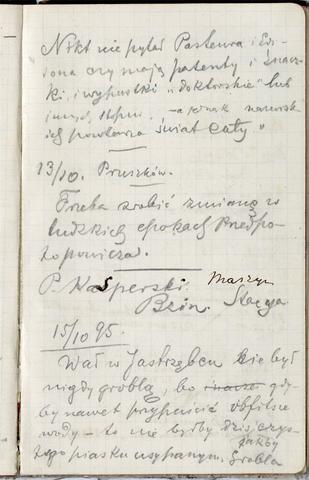 Nikt nie pytał Pasteura i Edi-
sona czy mają patenty i znacz-
ki, i wypustki „doktorskie" lub
innych stopni. - a jednak nazwisk-
ich powtarza świat cały"
13/10. Pruszków.
Trzeba zrobić zmianę w
ludzkich epokach Przedpo-
topowicza.
P. Kasperski. Maszyn
Bein. Stacya
15/10 95.
Wał w Jastrzębcu nie był
nigdy groblą, bo gdy-
by nawet przypuścić obfitsze
wody - to nie byłby dziś czys-
tego piasku usypanym. żakby
Grobla